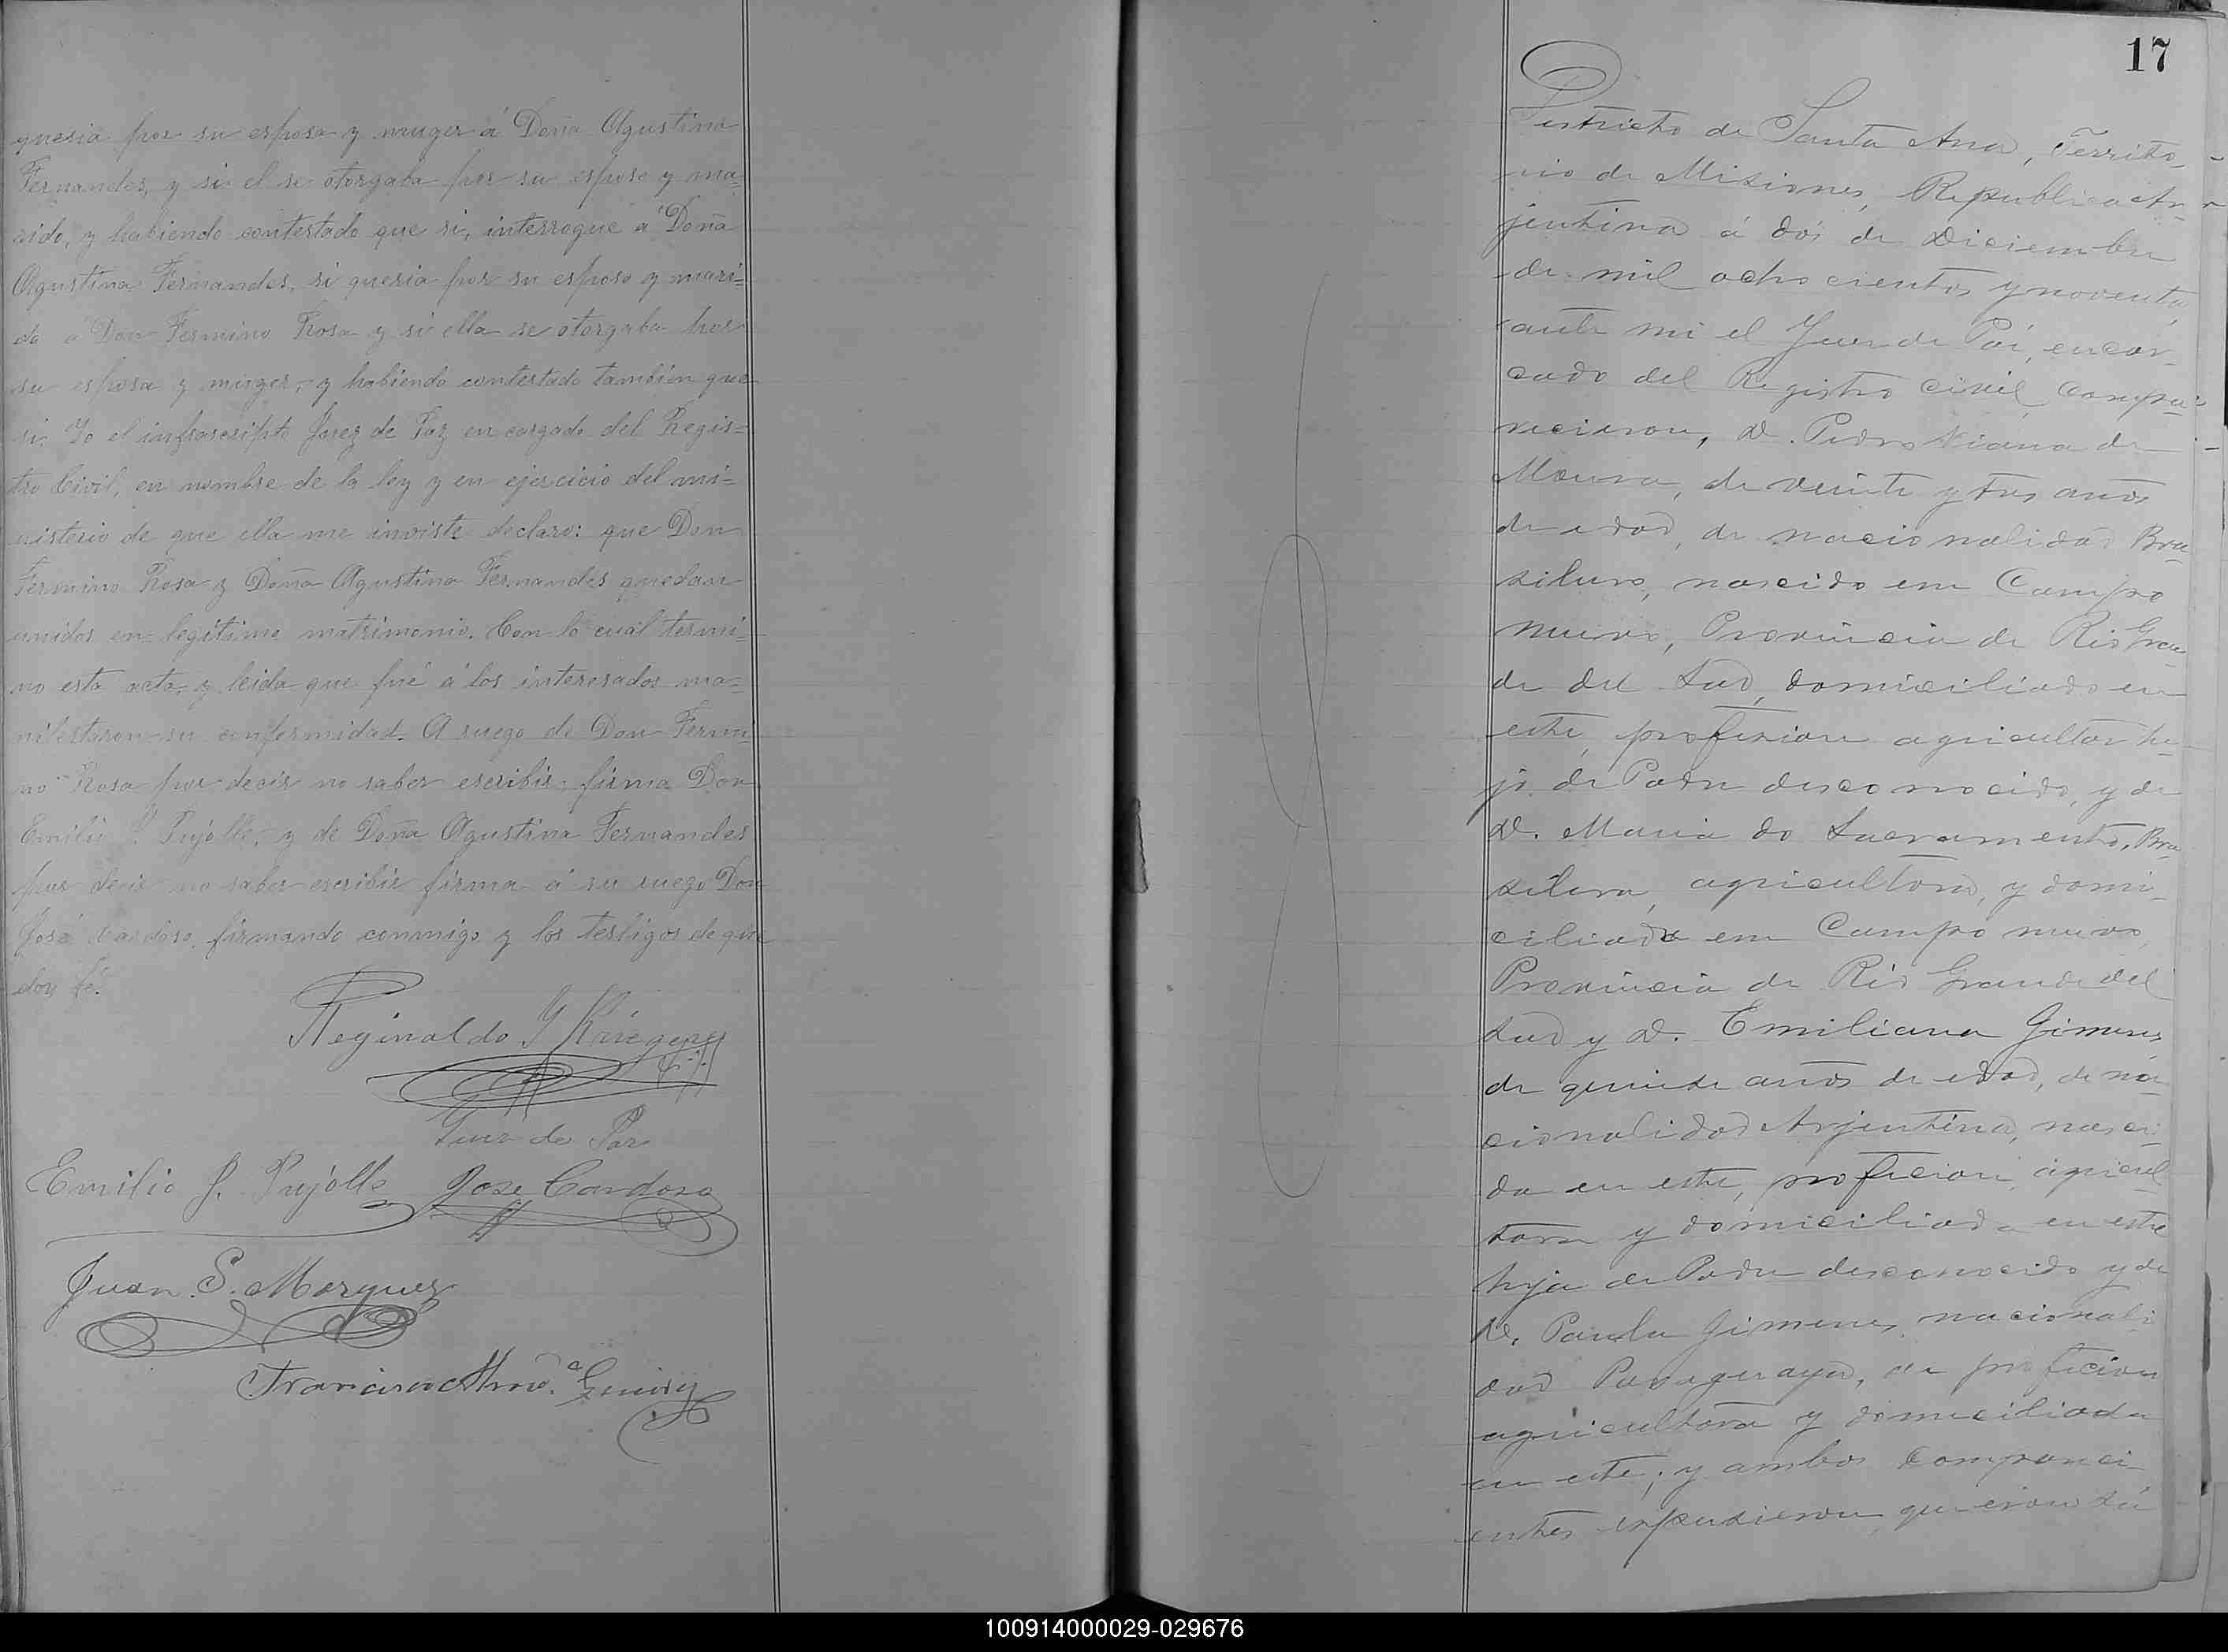 queria por su esposa y muger á Doña Agustina
Fernandes, y si el se otorgaba por su esposo y ma=
rido, y habiendo contestado que si, interrogue a Doña
Agustina Fernandes, si queria por su esposo y mari=
do a Don Fermino Rosa y si ella se otorgaba por
su esposa y muger, y habiendo contestado tambien que
si, Yo el infrascripto Juez de Paz encargado del Regis=
tro Civil, en nombre de la ley y en ejercicio del mi=
nisterio de que ella me inviste declaro: que Don
Fermino Rosa y Doña Agustina Fernandes quedan
unidos en legitimo matrimonio. Con lo cual termi=
no esta acta, y leida que fué á los interesados ma=
nifestaron su conformidad. A ruego de Don Fermi=
no Rosa por decir no saber escribir, firma Don
Emilio J. Pujolle, y de Doña Agustina Fernandes
por decir no saber escribir firma á su ruego Don
José Cardoso, firmando conmigo y los testigos de que
doy fé.
Reginaldo J Krieger
Juez de Paz
Emilio J. Pujolle Jose Cardoso
Juan S. Marquez
Francisco
17
Destricto de Santa Ana, Territo-
rio de Misiones, Republica Ar-
jentina á dos de Diciembre
de mil ocho cientos y noventa,
ante mi el Juez de Paz, encar-
cado del Registro Civil, compa-
recieron, D. Pedro Viana de
Moura, de veinte y tres años
de edad, de nacionalidad Bra-
silero, nascido em Campo
nuevo, Provincia de Rio Gran-
de del Sud, domiciliado en
este, profesion agricultor hi-
jo de Padre desconocido, y de
D. Maria do Sacramento, Bra-
silera, agricultora, y domi-
ciliada em Campo nuevo,
Provincia de Rio Grande del
Sud y D. Emiliana Gimenes,
de quinse años de edad, de na-
cionalidad Arjentina, nasci-
da en este, profecion, agricul-
tora y domiciliada en este
hija de Padre desconocido y de
D. Paula Gimenes, nacionali-
dad Paraguaya, de profecion
agricultora y domiciliada
en este; y ambos comparaci-
entes expusieron, que eran su
100914000029-029676